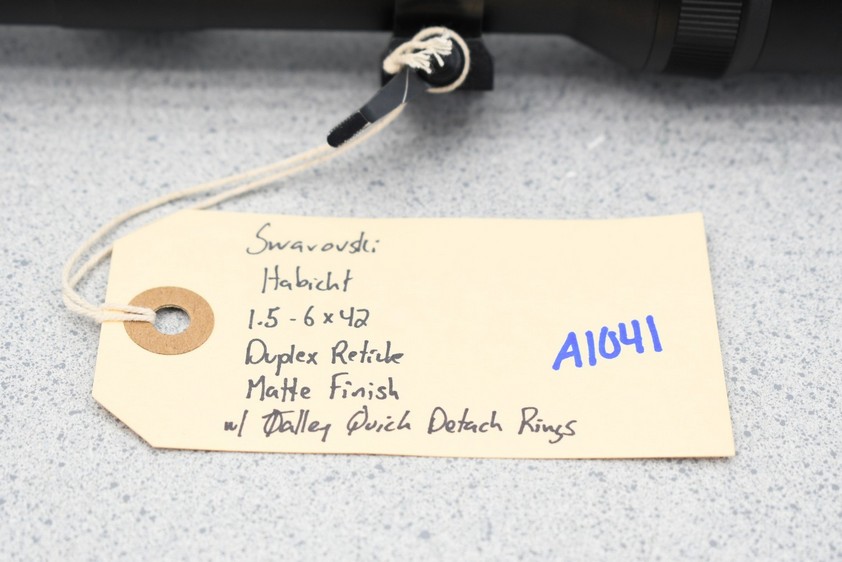 Swarovski
Habicht
1.5 - 6 x 42
Duplex Reticle
Matte Finish
w/ Talley Quick Detach Rings
A1041